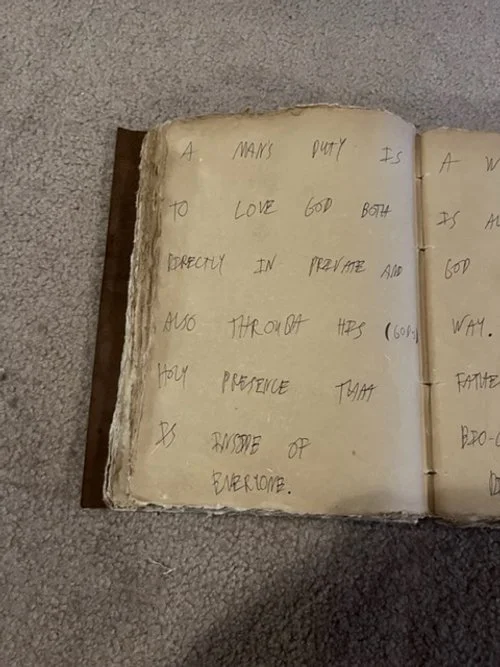 A MAN'S DUTY IS
TO LOVE GOD BOTH
DIRECTLY IN PRIVATE AND
ALSO THROUGH HIS (GOD'S)
HOLY PRESENCE THAT
IS INSIDE OF
EVERYONE.
A W
IS AL
GOD
WAY.
FATHE
BIO-